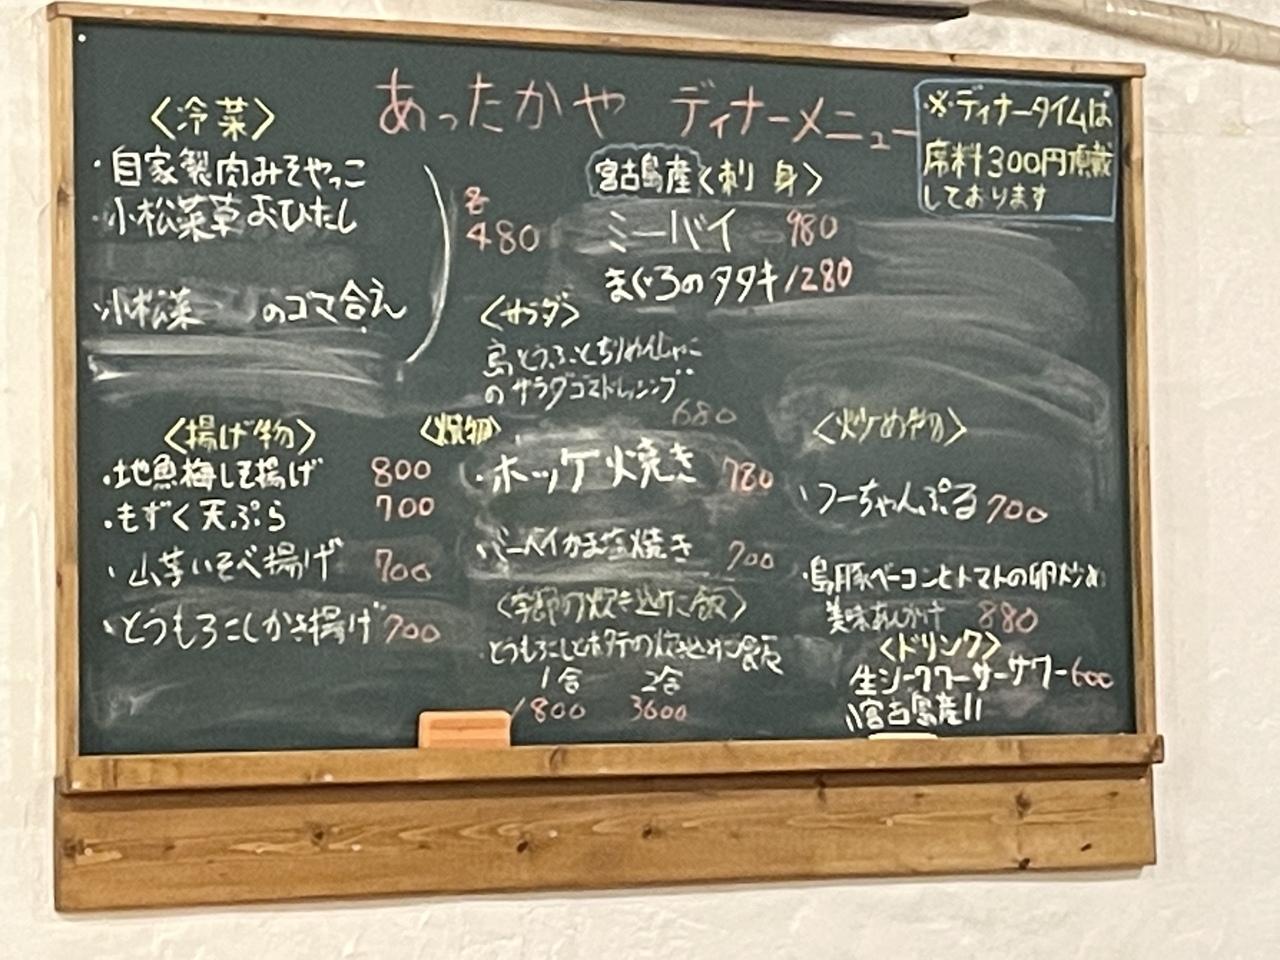 あったかや ディナーメニュー
※ディナータイムは
席料300円頂戴
しております
〈冷菜〉
・自家製肉みそやっこ
・小松菜草おひたし
・小松菜 のゴマ合え
各
480
宮古島産〈刺身〉
ミーバイ 980
まぐろのタタキ 1280
〈サラダ〉
島とうふとちりめんじゃこ
のサラダゴマドレッシング
680
〈揚げ物〉
・地魚梅しそ揚げ 800
・もずく天ぷら 700
・山芋いそべ揚げ 700
・とうもろこしかき揚げ 700
〈焼物〉
・ホッケ焼き 780
・ミーバイかま塩焼き 700
〈季節の炊き込めご飯〉
・とうもろこしとホタテの炊き込めご飯
1合 2合
1800 3600
〈炒め物〉
・フーちゃんぷる 700
・島豚ベーコンとトマトの卵炒め
美味あんかけ 880
〈ドリンク〉
生シークワーサーサワー 600
\\宮古島産//